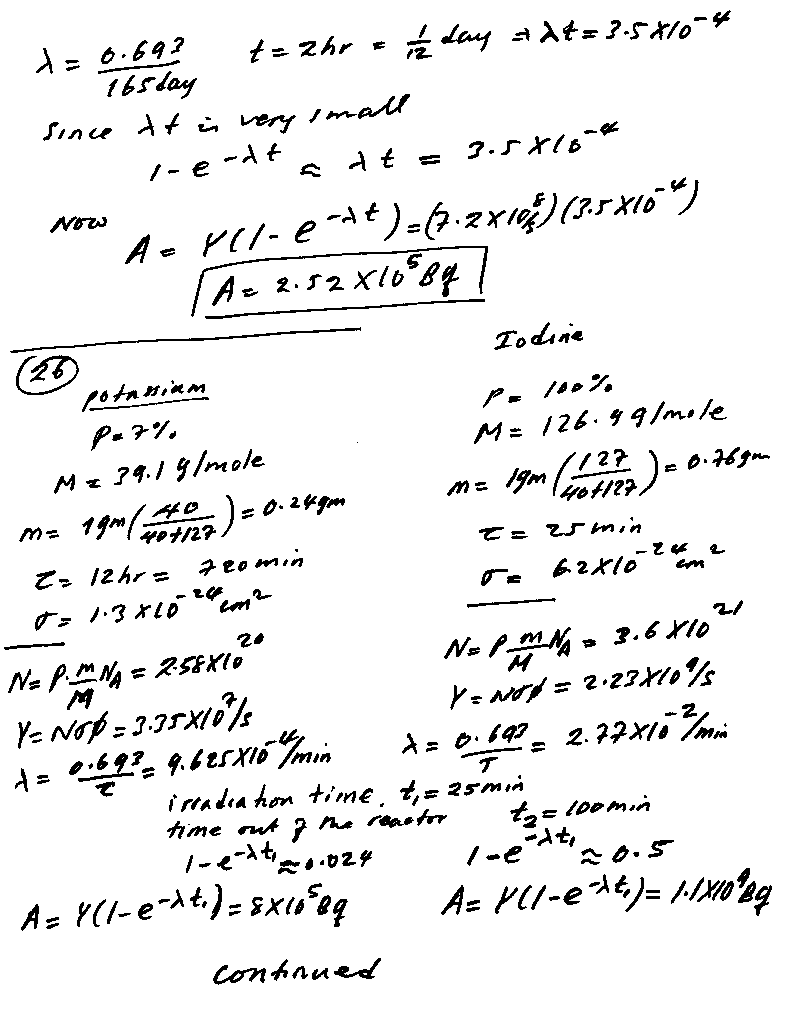 λ = 0.693 / 165day   t = 2hr = 1/12 day ⇒ λt = 3.5 X10^-4
Since λt is very small
1 - e^-λt ≈ λt = 3.5 X10^-4
Now
A = Y(1 - e^-λt) = (7.2X10^8/s)(3.5X10^-4)
A = 2.52 X10^5 Bq
26
potassium
P = 7%
M = 39.1 g/mole
m = 1gm (40 / 40+127) = 0.24gm
τ = 12hr = 720min
σ = 1.3 X10^-24 cm^2
N = P. m/M N_A = 2.58X10^20
Y = Nσφ = 3.35X10^7/s
λ = 0.693 / τ = 9.625X10^-4/min
Iodine
P = 100%
M = 126.9 g/mole
m = 1gm (127 / 40+127) = 0.76gm
τ = 25 min
σ = 6.2X10^-24 cm^2
N = P m/M N_A = 3.6 X10^21
Y = Nσφ = 2.23X10^9/s
λ = 0.693 / T = 2.77X10^-2/min
irradiation time. t₁ = 25min
time out of the reactor t₂ = 100min
1 - e^-λt₁ ≈ 0.024
A = Y(1 - e^-λt₁) = 8X10^5 Bq
1 - e^-λt₁ ≈ 0.5
A = Y(1 - e^-λt₁) = 1.1X10^9 Bq
continued